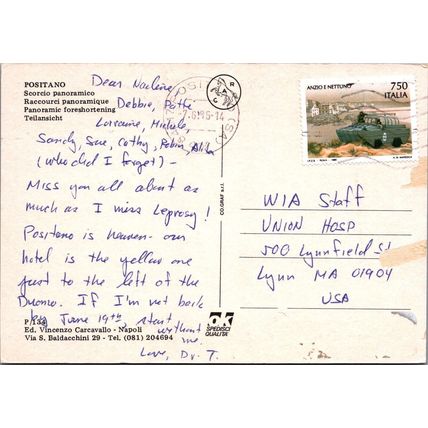 POSITANO
Scorcio panoramico
Raccourci panoramique
Panoramic foreshortening
Teilansicht
Dear Narlene,
Debbie, Patti
Lorraine, Michele,
Sandy, Sue, Cathy, Robin,
(who did I forget) -
Miss you all about as
much as I miss Leprosy!
Positano is heaven - our
hotel is the yellow one
just to the left of the
Duomo. If I'm not back
by June 19th, start
without
me.
Love, Dr. T.
P/
Ed. Vincenzo Carcavallo - Napoli
Via S. Baldacchini 29 - Tel. (081) 204694
CO.GRAF s.r.l.
OK
SPEDISCI
QUALITA'
ANZIO E NETTUNO
750
ITALIA
WIA Staff
UNION HOSP
500 Lynnfield St
Lynn MA 01904
USA